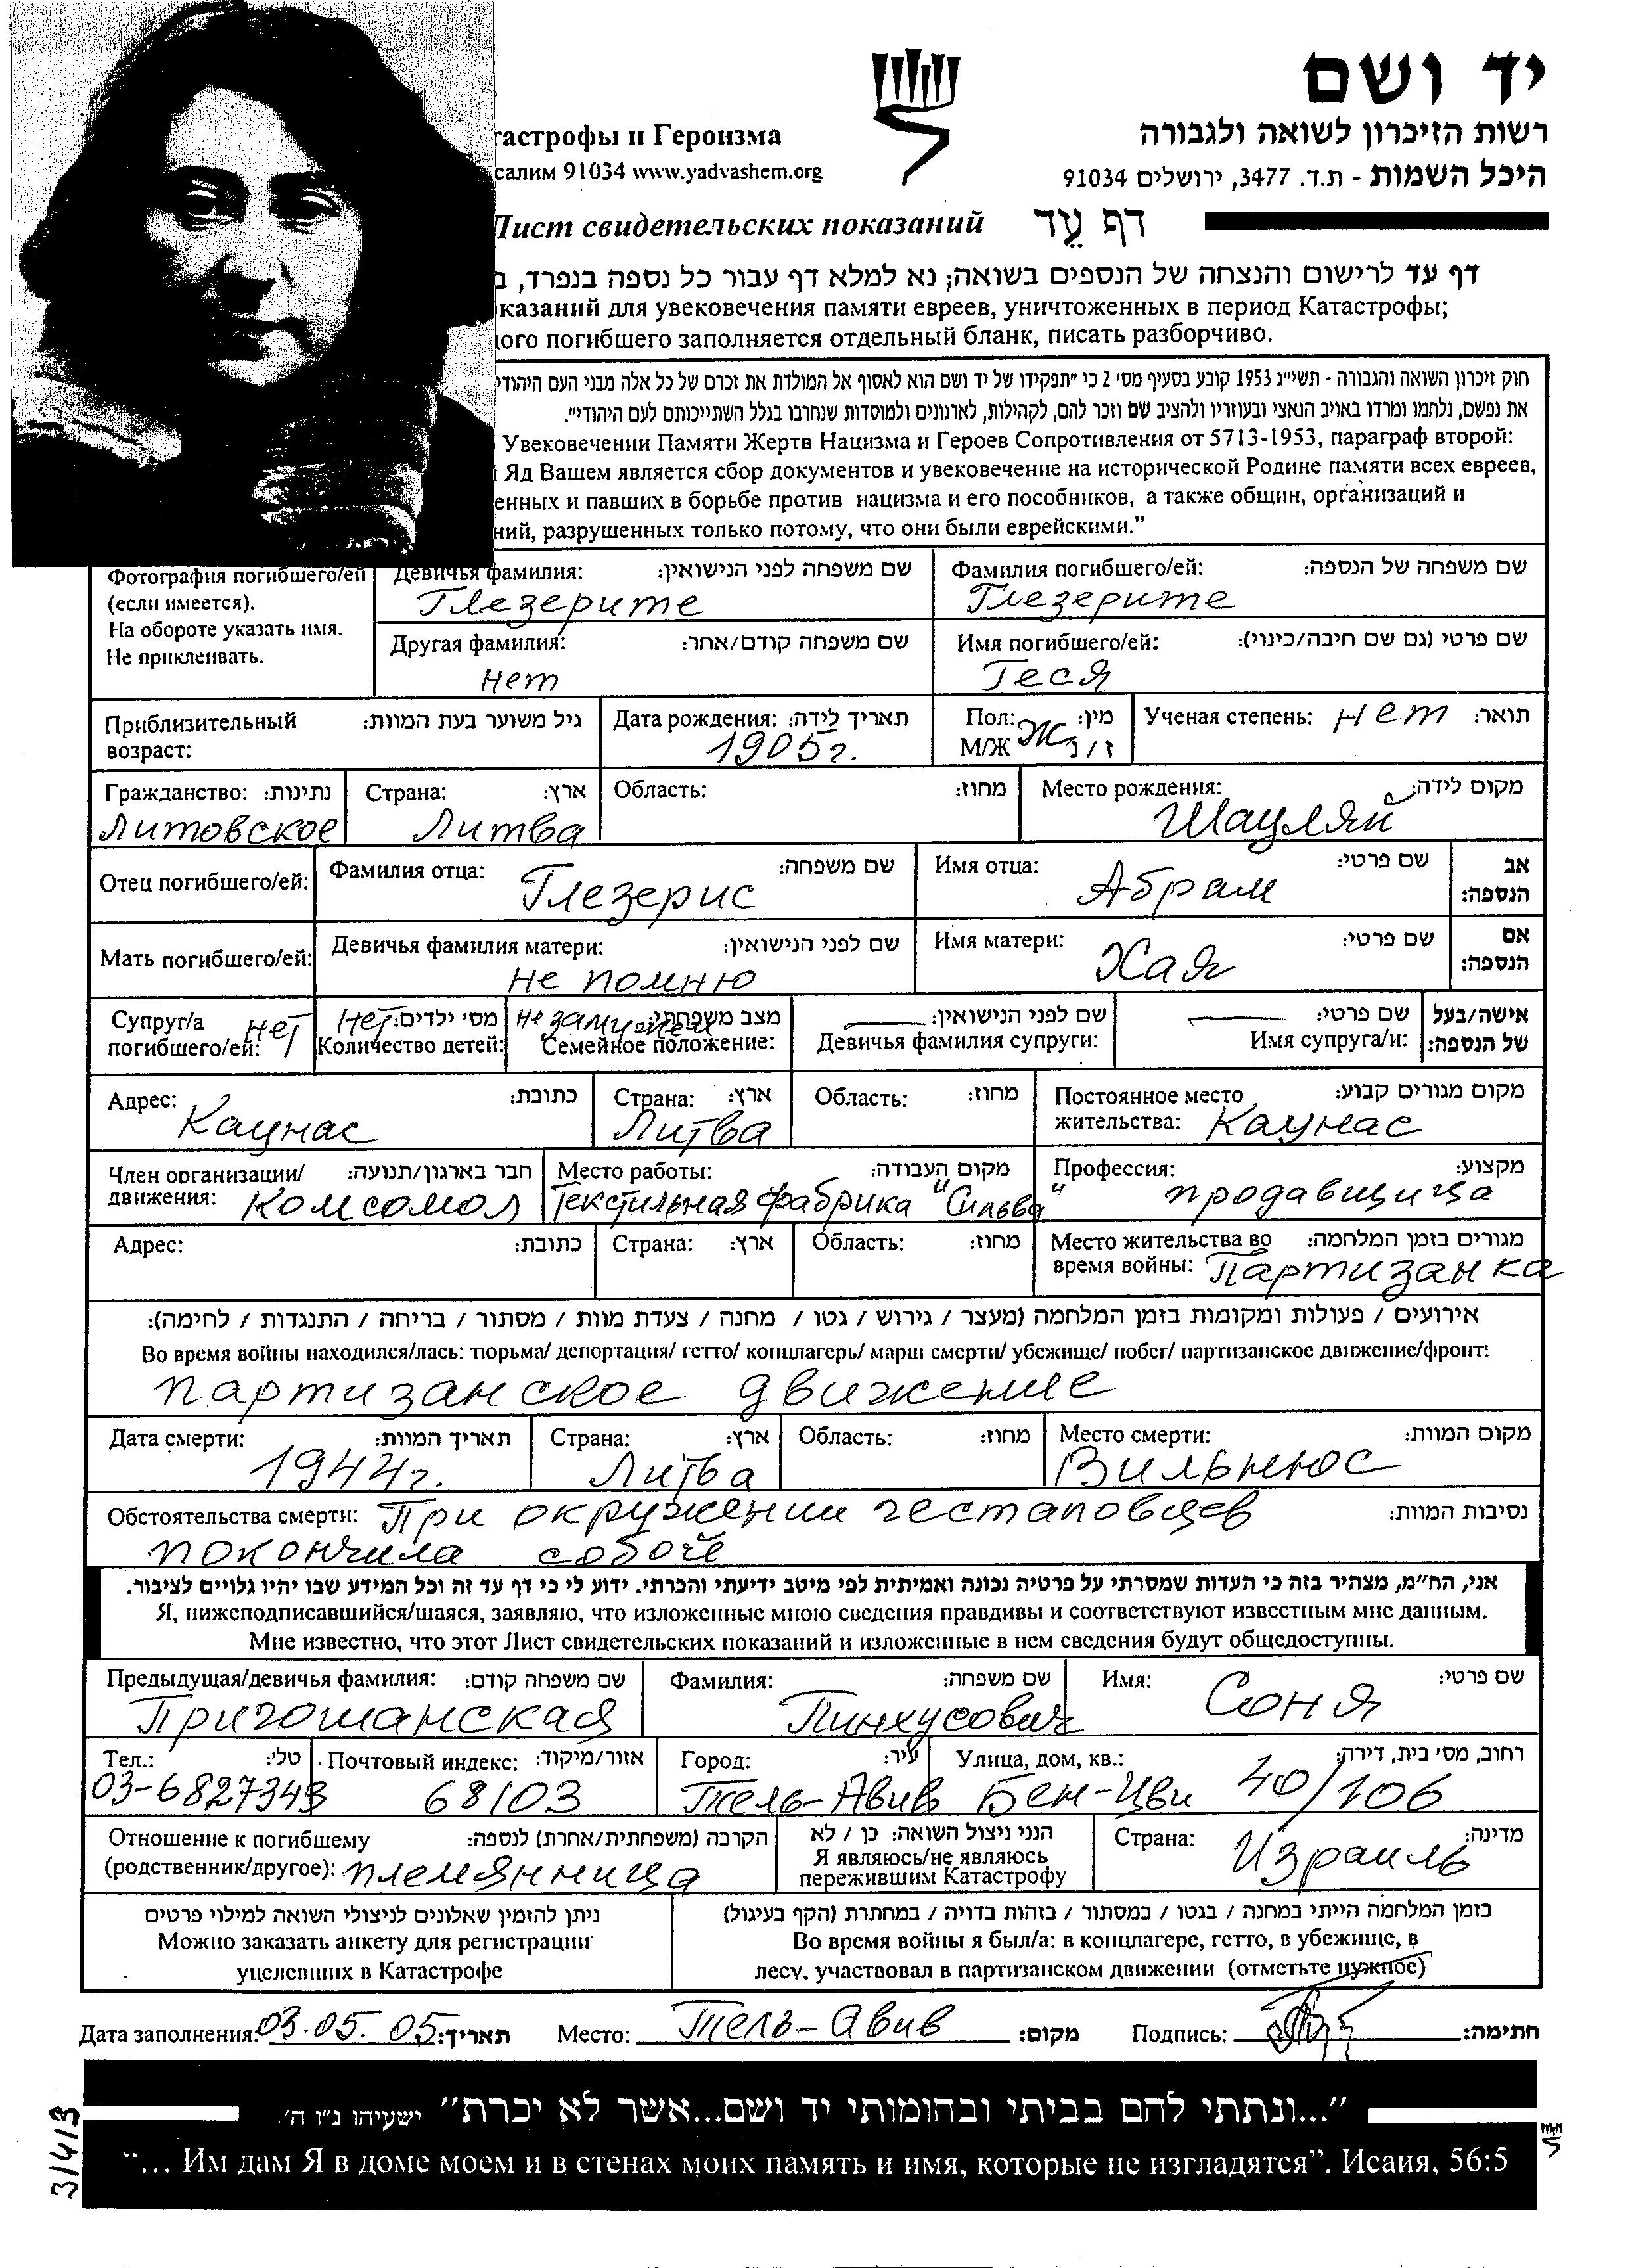 יד ושם
רשות הזיכרון לשואה ולגבורה
тастрофы и Героизма
היכל השמות - ת.ד. 3477, ירושלים 91034
салим 91034 www.yadvashem.org
Лист свидетельских показаний דף עֵד
דף עד לרישום והנצחה של הנספים בשואה; נא למלא דף עבור כל נספה בנפרד, ב
казаний для увековечения памяти евреев, уничтоженных в период Катастрофы;
ого погибшего заполняется отдельный бланк, писать разборчиво.
חוק זיכרון השואה והגבורה - תשי״ג 1953 קובע בסעיף מס׳ 2 כי ״תפקידו של יד ושם הוא לאסוף אל המולדת את זכרם של כל אלה מבני העם היהודי
את נפשם, נלחמו ומרדו באויב הנאצי ובעוזריו ולהציב שם וזכר להם, לקהילות, לארגונים ולמוסדות שנחרבו בגלל השתייכותם לעם היהודי״.
Увековечении Памяти Жертв Нацизма и Героев Сопротивления от 5713-1953, параграф второй:
Яд Вашем является сбор документов и увековечение на исторической Родине памяти всех евреев,
енных и павших в борьбе против нацизма и его пособников, а также общин, организаций и
ний, разрушенных только потому, что они были еврейскими.”
Фотография погибшего/ей
(если имеется).
На обороте указать имя.
Не приклеивать.
Девичья фамилия: שם משפחה לפני הנישואין:
Глезерите
Фамилия погибшего/ей: שם משפחה של הנספה:
Глезерите
Другая фамилия: שם משפחה קודם/אחר:
нет
Имя погибшего/ей: שם פרטי (גם שם חיבה/כינוי):
Геся
Приблизительный возраст: גיל משוער בעת המוות:
Дата рождения: תאריך לידה:
1905г.
Пол: מין:
М/Ж Ж ז / נ
Ученая степень: нет תואר:
Гражданство: נתינות:
Литовское
Страна: ארץ:
Литва
Область: מחוז:
Место рождения: מקום לידה:
Шауляй
Отец погибшего/ей:
Фамилия отца: שם משפחה:
Глезерис
Имя отца: שם פרטי:
Абрам
אב הנספה:
Мать погибшего/ей:
Девичья фамилия матери: שם לפני הנישואין:
не помню
Имя матери: שם פרטי:
Хая
אם הנספה:
Супруг/а погибшего/ей: нет
нет מס׳ ילדים:
Количество детей:
не замужем מצב משפחתי:
Семейное положение:
שם לפני הנישואין:
Девичья фамилия супруги:
שם פרטי:
Имя супруга/и:
אישה/בעל של הנספה:
Адрес: כתובת:
Каунас
Страна: ארץ:
Литва
Область: מחוז:
Постоянное место жительства: מקום מגורים קבוע:
Каунас
Член организации/движения: חבר בארגון/תנועה:
Комсомол
Место работы: מקום העבודה:
Текстильная фабрика "Сильва"
Профессия: מקצוע:
продавщица
Адрес: כתובת:
Страна: ארץ:
Область: מחוז:
Место жительства во время войны: מגורים בזמן המלחמה:
Партизанка
אירועים / פעולות ומקומות בזמן המלחמה (מעצר / גירוש / גטו / מחנה / צעדת מוות / מסתור / בריחה / התנגדות / לחימה):
Во время войны находился/лась: тюрьма/ депортация/ гетто/ концлагерь/ марш смерти/ убежище/ побег/ партизанское движение/фронт:
партизанское движение
Дата смерти: תאריך המוות:
1944г.
Страна: ארץ:
Литва
Область: מחוז:
Место смерти: מקום המוות:
Вильнюс
Обстоятельства смерти: При окружении гестаповцев נסיבות המוות:
покончила собой
אני, הח״מ, מצהיר בזה כי העדות שמסרתי על פרטיה נכונה ואמיתית לפי מיטב ידיעתי והכרתי. ידוע לי כי דף עד זה וכל המידע שבו יהיו גלויים לציבור.
Я, нижеподписавшийся/шаяся, заявляю, что изложенные мною сведения правдивы и соответствуют известным мне данным.
Мне известно, что этот Лист свидетельских показаний и изложенные в нем сведения будут общедоступны.
Предыдущая/девичья фамилия: שם משפחה קודם:
Пригошанская
Фамилия: שם משפחה:
Пинхусович
Имя: Соня שם פרטי:
Тел.: טל׳:
03-6827343
Почтовый индекс: אזור/מיקוד:
68103
Город: עיר:
Тель-Авив
Улица, дом, кв.: רחוב, מס׳ בית, דירה:
Бен-Цви 40/106
Отношение к погибшему (родственник/другое): הקרבה (משפחתית/אחרת) לנספה:
племянница
הנני ניצול השואה: כן / לא
Я являюсь/не являюсь
пережившим Катастрофу
Страна: מדינה:
Израиль
ניתן להזמין שאלונים לניצולי השואה למילוי פרטים
Можно заказать анкету для регистрации
уцелевших в Катастрофе
בזמן המלחמה הייתי במחנה / בגטו / במסתור / בזהות בדויה / במחתרת (הקף בעיגול)
Во время войны я был/а: в концлагере, гетто, в убежище, в
лесу, участвовал в партизанском движении (отметьте нужное)
Дата заполнения: 03.05.05 תאריך: Место: Тель-Авив מקום: Подпись: חתימה:
”...ונתתי להם בביתי ובחומותי יד ושם...אשר לא יכרת” ישעיהו נ״ו ה׳.
“... Им дам Я в доме моем и в стенах моих память и имя, которые не изгладятся”. Исаия, 56:5
31413